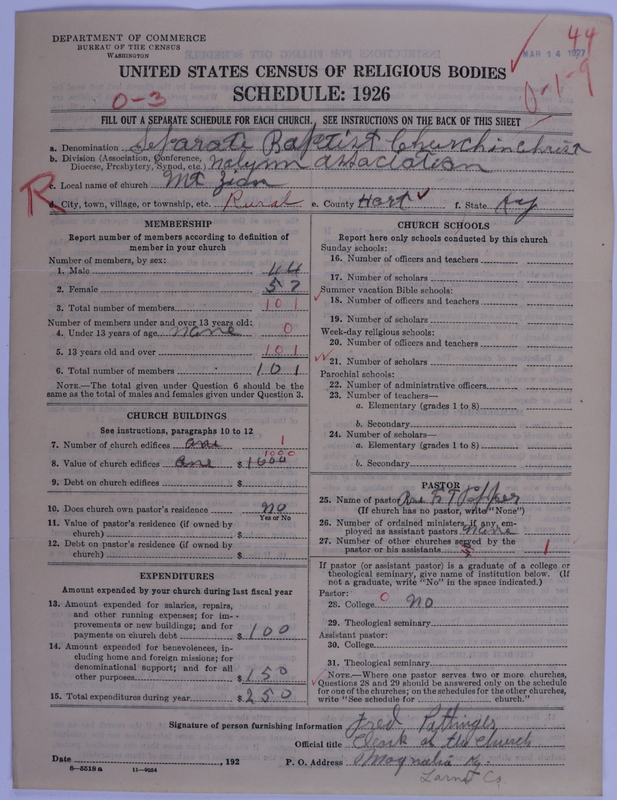 DEPARTMENT OF COMMERCE
BUREAU OF THE CENSUS
WASHINGTON
MAR 14 1927
44
UNITED STATES CENSUS OF RELIGIOUS BODIES
SCHEDULE: 1926
0-3
0-1-9
FILL OUT A SEPARATE SCHEDULE FOR EACH CHURCH. SEE INSTRUCTIONS ON THE BACK OF THIS SHEET
a. Denomination Separate Baptist Church in Christ
b. Division (Association, Conference, Diocese, Presbytery, Synod, etc.) Nolynn association
R
c. Local name of church Mt Zion
d. City, town, village, or township, etc. Rural e. County Hart f. State Ky
MEMBERSHIP
Report number of members according to definition of
member in your church
Number of members, by sex:
1. Male 44
2. Female 57
3. Total number of members 101
Number of members under and over 13 years old:
4. Under 13 years of age none 0
5. 13 years old and over 101
6. Total number of members 101
NOTE.—The total given under Question 6 should be
same as the total of males and females given under Question 3.
CHURCH BUILDINGS
See instructions, paragraphs 10 to 12
7. Number of church edifices one 1
1000
8. Value of church edifices one $ 1000
9. Debt on church edifices $
10. Does church own pastor's residence no
Yes or No
11. Value of pastor's residence (if owned by
church) $
12. Debt on pastor's residence (if owned by
church) $
EXPENDITURES
Amount expended by your church during last fiscal year
13. Amount expended for salaries, repairs,
and other running expenses; for im-
provements or new buildings; and for
payments on church debt $ 100
14. Amount expended for benevolences, in-
cluding home and foreign missions; for
denominational support; and for all
other purposes $ 150
15. Total expenditures during year $ 250
CHURCH SCHOOLS
Report here only schools conducted by this church
Sunday schools:
16. Number of officers and teachers
17. Number of scholars
Summer vacation Bible schools:
18. Number of officers and teachers
19. Number of scholars
Week-day religious schools:
20. Number of officers and teachers
21. Number of scholars
Parochial schools:
22. Number of administrative officers
23. Number of teachers—
a. Elementary (grades 1 to 8)
b. Secondary
24. Number of scholars—
a. Elementary (grades 1 to 8)
b. Secondary
PASTOR
25. Name of pastor
(If church has no pastor, write "None")
26. Number of ordained ministers, if any, em-
ployed as assistant pastors none
27. Number of other churches served by the
pastor or his assistants 1
If pastor (or assistant pastor) is a graduate of a college or
theological seminary, give name of institution below. (If
not a graduate, write "No" in the space indicated.)
Pastor:
28. College 0 no
29. Theological seminary
Assistant pastor:
30. College
31. Theological seminary
NOTE.—Where one pastor serves two or more churches,
Questions 28 and 29 should be answered only on the schedule
for one of the churches; on the schedules for the other churches,
write "See schedule for church."
Signature of person furnishing information Fred
Official title Clerk of the Church
Date , 192 P. O. Address Magnolia Ky.
Larue Co
8—5518a 11—9034